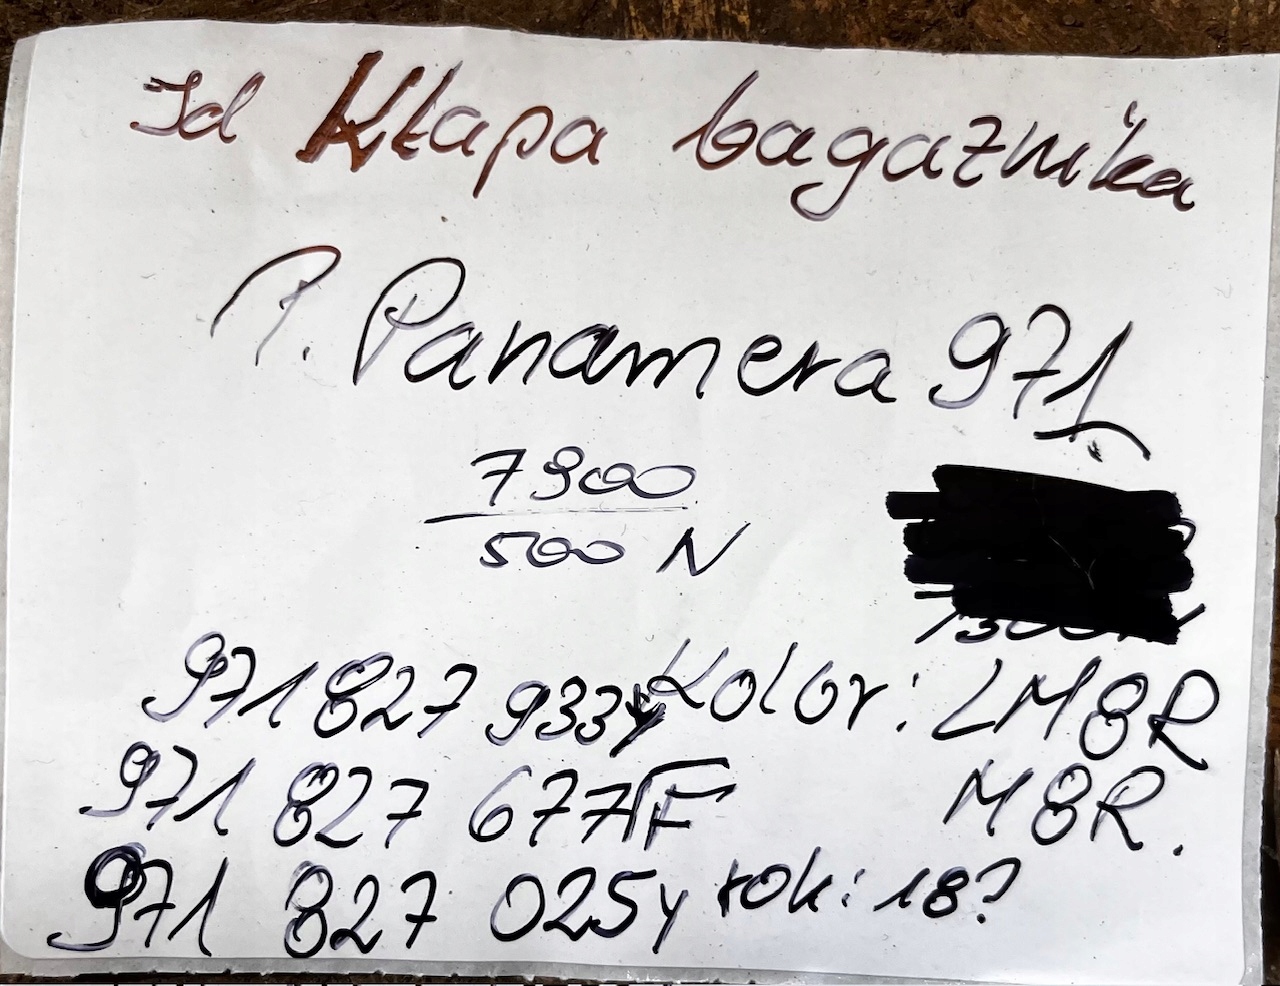 Id Kłapa bagaznika
P. Panamera 971
7900
500 N
971 827 933y Kolor: LM8R
971 827 677F M8R.
971 827 025y rok: 18?